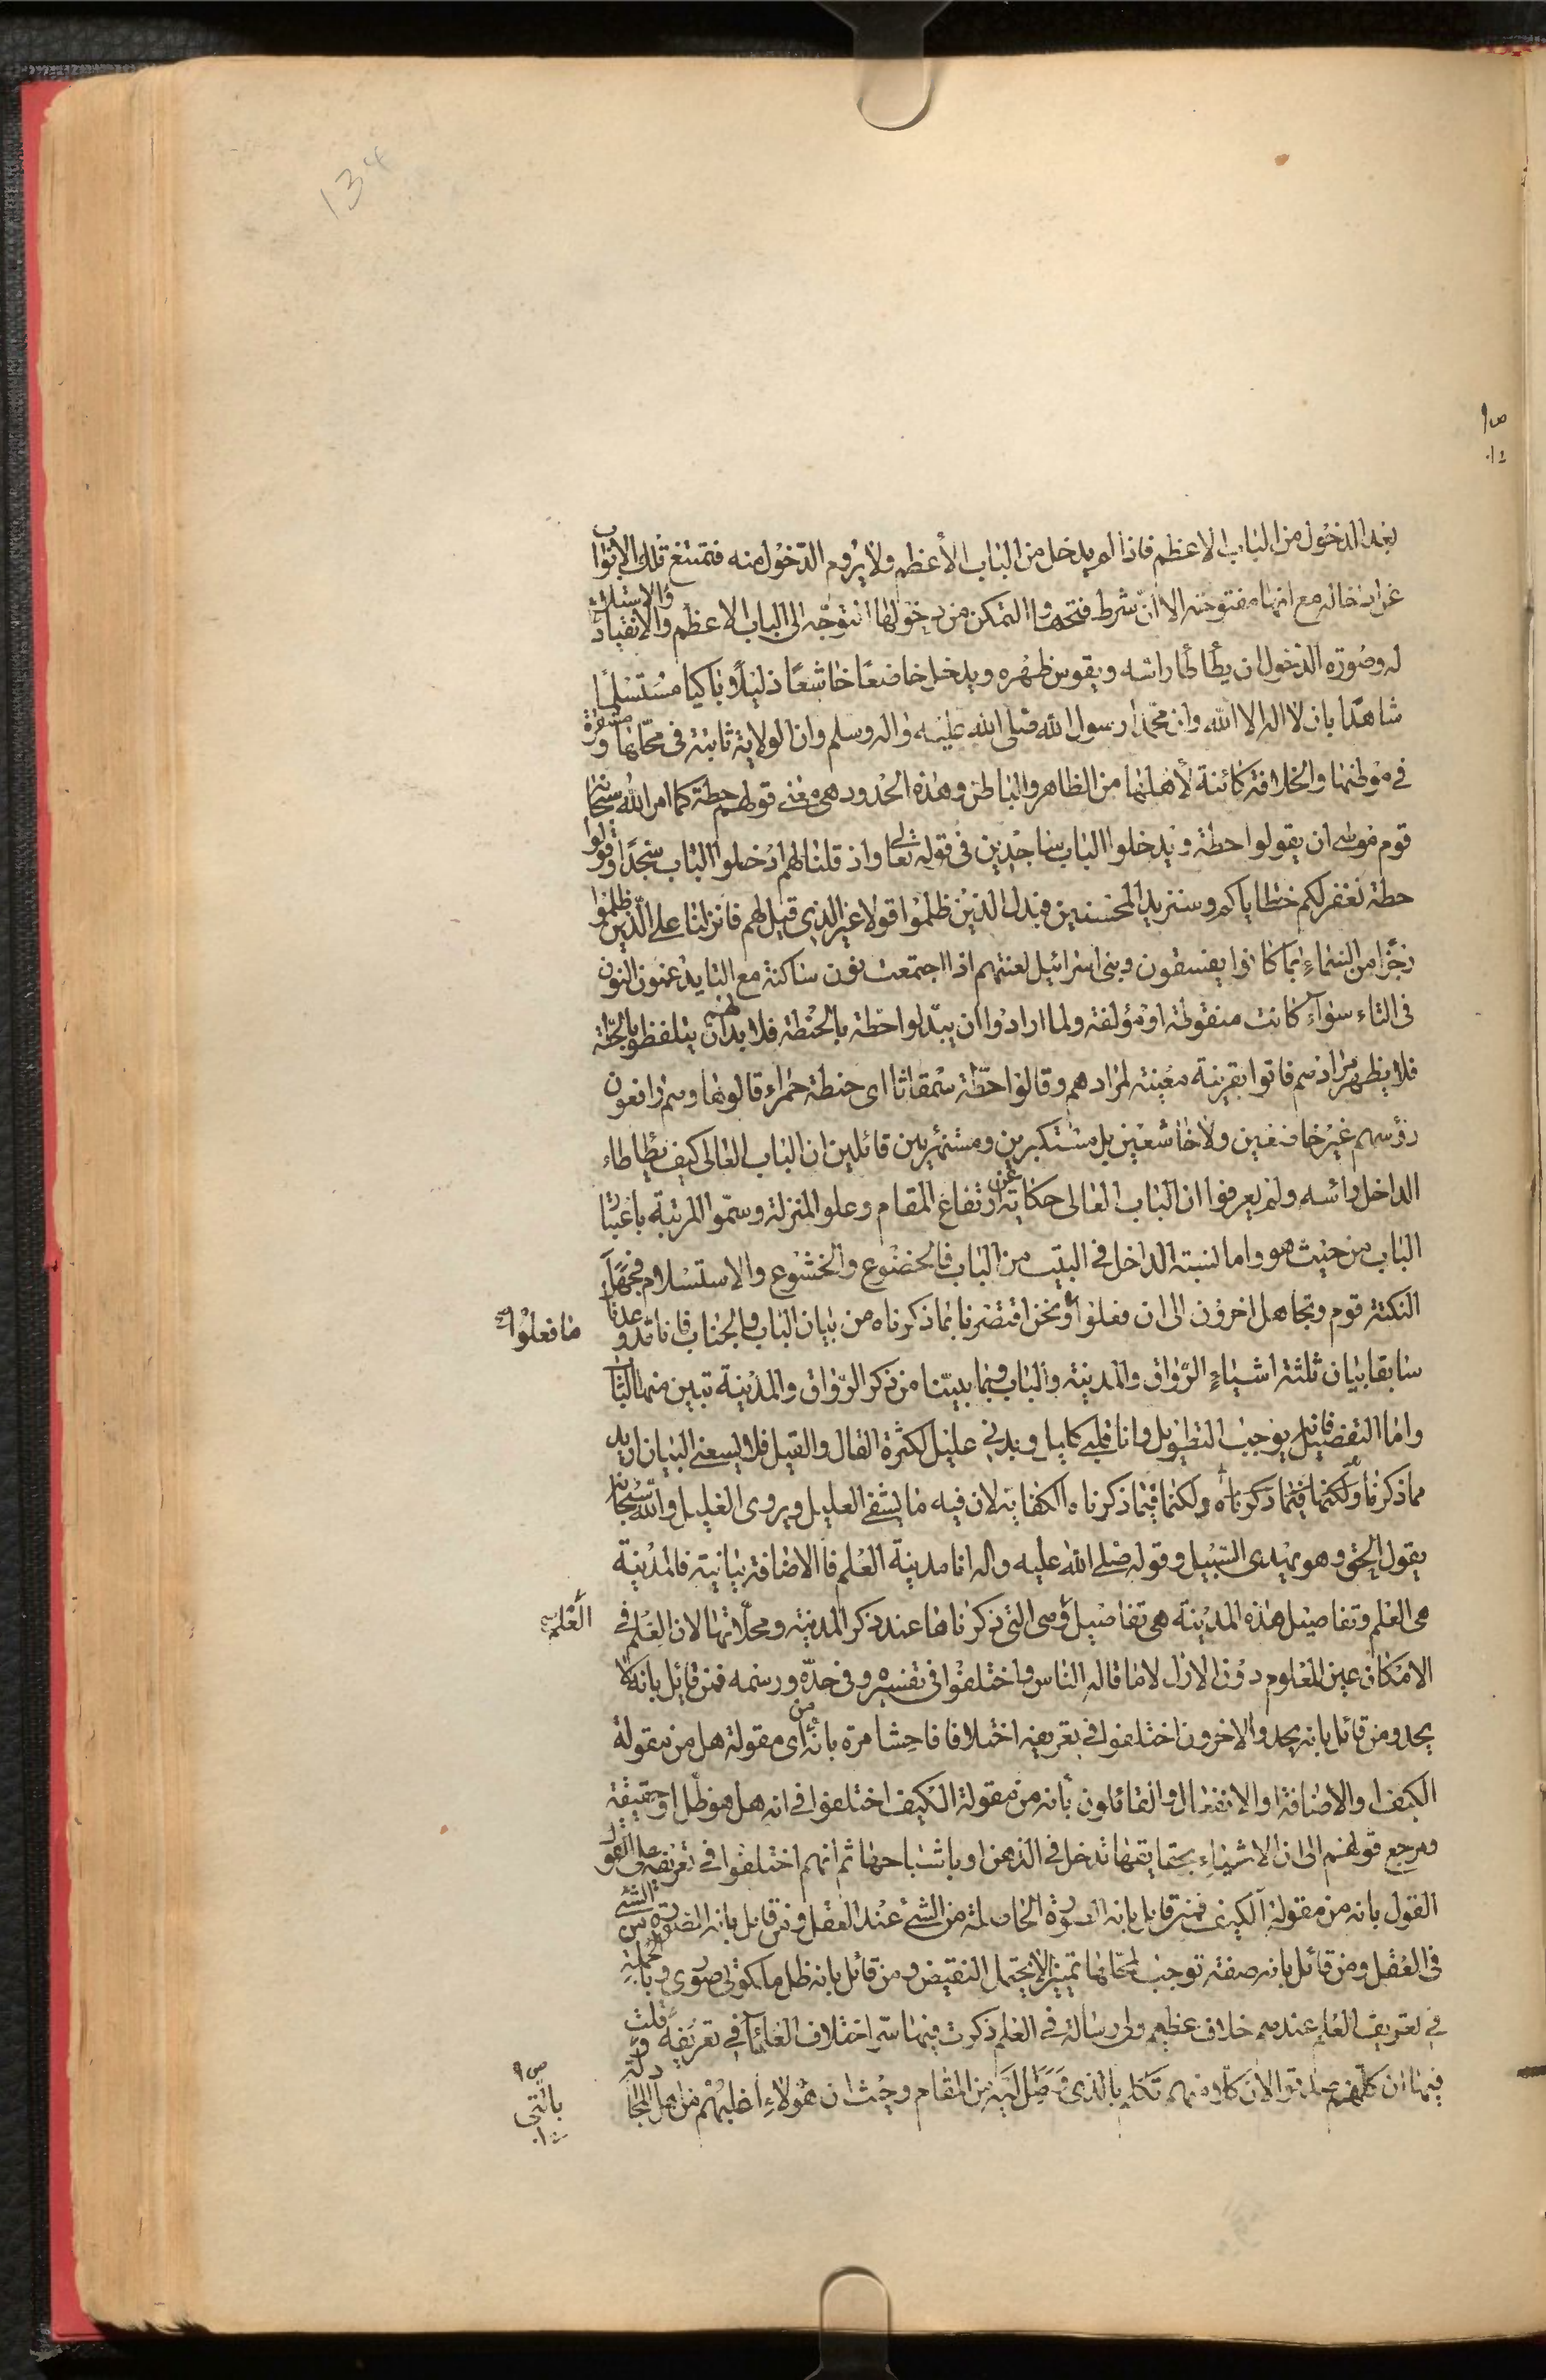 134
بعد الدخول من الباب الاعظم فاذا لم يدخل من الباب الأعظم ولا يروم الدّخول منه فتمتنع تلك الابواب
عن ادخاله مع انها مفتوحة الا انّ شرط فتحها و التمكن من دخولها التوجّه الى الباب الاعظم والانقياد والاستسلام
له وصورة الدّخول ان يطأطأ راسه ويقوس ظهره ويدخل خاضعًا خاشعًا ذليلًا وباكيا مستسلمًا
شاهدًا بان لا اله الا الله وان محمّدا رسول الله صلى الله عليه واله وسلم وان الولاية ثابتة فى محّالها ومستقرة
في موطنها والخلافة كائنة لأهلها من الظاهر والباطن وهذه الحدود هى معنى قولهم حطة كما امر الله سبحانه
قوم موسى ان يقولوا حطة ويدخلوا الباب ساجدين فى قوله تعالى واذ قلنا لهم ادخلوا الباب سجّدًا وقولوا
حطة نغفر لكم خطاياكم وسنزيد المحسنين فبدل الذين ظلموا قولا غير الذى قيل لهم فانزلنا على الّذين ظلموا
رجزًا من السّماءِ بما كانوا يفسقون وبنى اسرائيل لغتهم اذا اجتمعت نون ساكنة مع التا يدغمون النون
فى التاء سواء كانت منقوطة او مؤلفة ولما ارادوا ان يبدّلوا حطة بالحنطة فلا بد لهم ان يتلفظوا بالحطّة
فلا يظهر مرادهم فاتوا بقرينة معينة لمرادهم وقالوا حطّة سمقاثا اى حنطة حمراء قالوها وهم رافعون
رؤسهم غير خاضعين ولا خاشعين بل مستكبرين ومشمئزين قائلين ان الباب العالى كيف يطأطاء
الداخل رائسه ولم يعرفوا ان الباب العالى حكاية عن ارتفاع المقام وعلو المنزلة وسمّو المرتبة باعتبار
الباب من حيث هو واما لنسبة الداخل في البيت من الباب فالخضوع والخشوع والاستسلام فجهل
النكتة قوم وتجاهل اخرون الى ان فعلوا ونحن اقتصرنا بما ذكرناه من بيان الباب والجناب فانا قد وعدنا
ما فعلوا
سابقا بيان ثلثة اشياءٍ الرّواق والمدينة والباب وبما بيّنا من ذكر الرّواق والمدينة تبين منهما الباب
واما التفصيل فانه يوجب التطويل وانا قلبي كليل وبدنى عليل لكثرة القال والقيل فلا يسعنى البيان ازيد
مما ذكرنا ولكنما فيما ذكرناه ولكنما فيما ذكرناه الكفاية لان فيه ما يشفى العليل ويروى الغليل والله سبحانه
يقول الحق وهو يهدى السّبيل وقوله صلى الله عليه واله انا مدينة العلم فالاضافة بيانية فالمدينة
هى العلم وتفاصيل هذه المدينة هى تفاصيل وهى التى ذكرناها عند ذكر المدينة ومحلّاتها لان العلم فى
العلم
الامكان عين المعلوم دون الازل لا ما قاله الناس واختلفوا فى نفسه وفى حدّه ورسمه فمن قائل بانه لا
يحد ومن قائل بانه يحد والاخرون اختلفوا في تعريفه اختلافا فاحشا مرة بانّه من اى مقولة هل من مقولة
الكيف او الاضافة او الانفعال والقائلون بأنه من مقولة الكيف اختلفوا فى انه هل هو ظل او حقيقة
ومرجع قولهم الى ان الاشياءِ بحقايقها تدخل فى الذهن او باشباحها ثم انهم اختلفوا فى تعريفه على القول
القول بانه من مقولة الكيف فمن قائل بانه الصورة الحاصلة من الشئ عند العقل ومن قائل بانه الصورة من الشئ
فى العقل ومن قائل بانه صفة توجب لمحّالها تميزا لا يحتمل النقيض ومن قائل بانه ظل ملكوتى صورى وبالجملة
فى تعريف العلم عندهم خلاف عظيم ولى رسالة فى العلم ذكرت فيها سر اختلاف العلمآء في تعريفه وقلت
فيها ان كلهم صدقوا لان كلا منهم تكلم بالذى وصل اليه من المقام وحيث ان هؤلاءِ اغلبهم من اهل المجادلة
بالتى